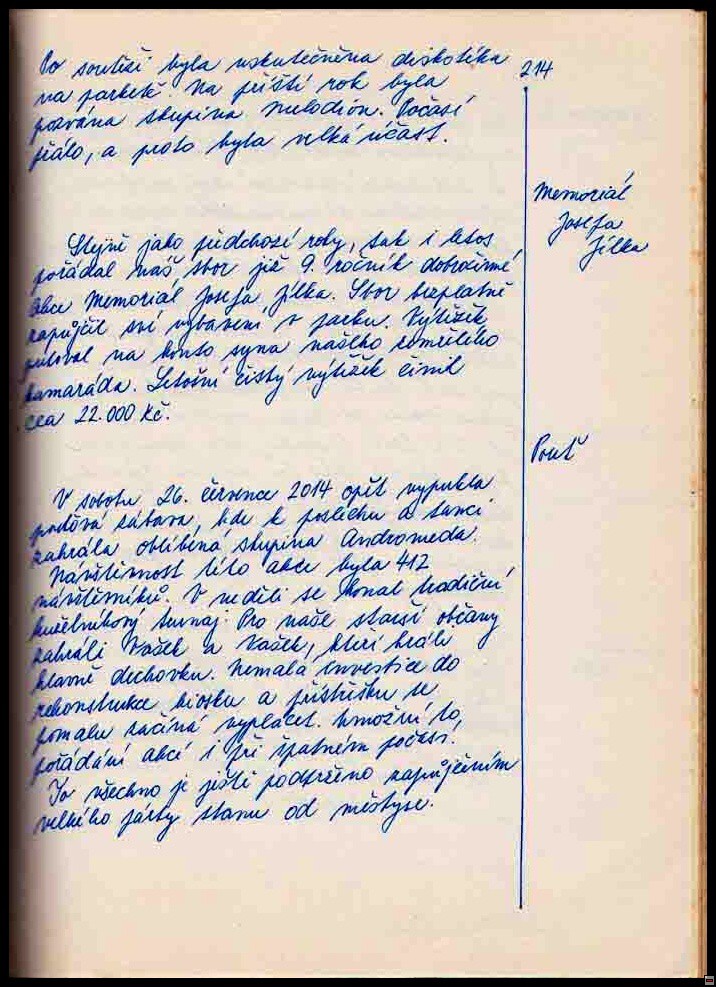 Po soutěži byla uskutečněna diskotéka
na parketě. Na příští rok byla
pozvána skupina Melodion. Počasí
přálo, a proto byla velká účast.
214
Memoriál
Josefa
Jílka
Stejně jako předchozí roky, tak i letos
pořádal náš sbor již 9. ročník dobročinné
akce Memoriál Josefa Jílka. Sbor bezplatně
zapůjčil své vybavení v parku. Výtěžek
putoval na konto syna našeho zemřelého
kamaráda. Letošní čistý výtěžek činil
cca 22.000 Kč.
Pouť
V sobotu 26. července 2014 opět vypukla
pouťová zábava, kde k poslechu a tanci
zahrála oblíbená skupina Andromeda.
Návštěvnost této akce byla 412
návštěvníků. V neděli se konal tradiční
kuželníkový turnaj. Pro naše starší občany
zahráli Vašek a Vašek, kteří hráli
hlavně dechovku. Nemalá investice do
rekonstrukce kiosku a přístřešku se
pomalu začíná vyplácet. Umožní to,
pořádání akcí i při špatném počasí.
To všechno je ještě podtrženo zapůjčením
velkého párty stanu od městyse.